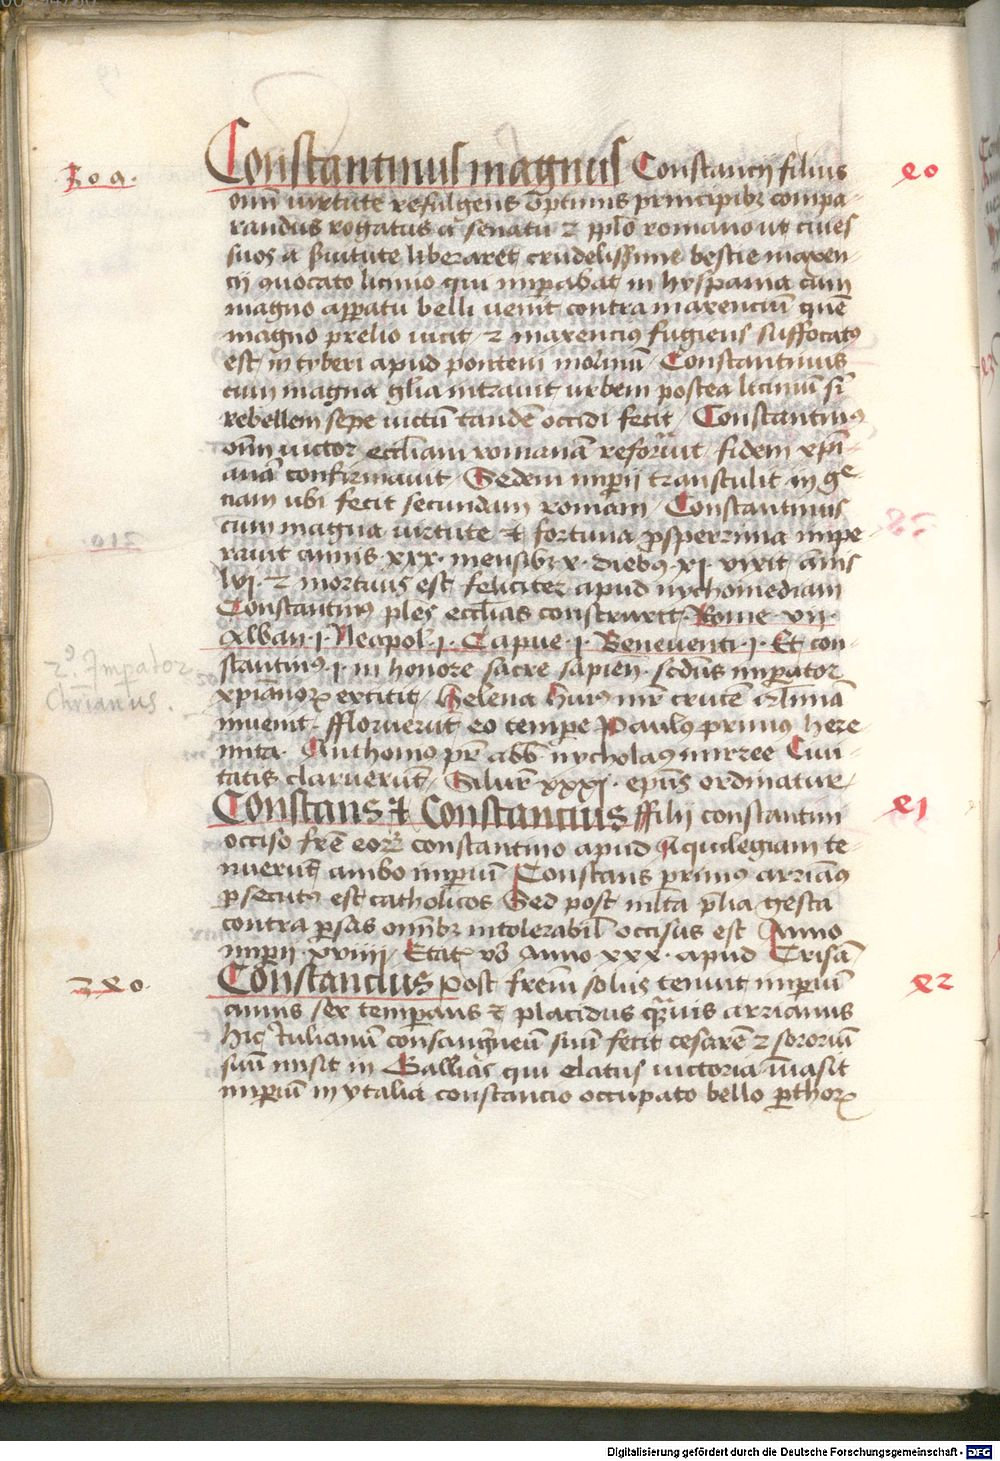 309.
40
Constantinus magnus Constancij filius
om̄i uirtute refulgens Optimis principibꝫ compa-
randus rogatus a senatu ⁊ pplo romano ut ciues
suos a suitute liberaret crudelissime bestie maxen-
cij ꝯuocato licinio qui impabat in hyspania cum
magno appatu belli uenit contra maxenciū quē
magno prelio uicit ⁊ maxencius fugiens suffocatꝰ
est in tyberi apud pontem moluiū Constantinus
cum magna gl̄ia intrauit urbem postea liciniū sı̄
rebellem sepe uictū tandē occidi fecit Constantinꝰ
om̄i uictor eccl̄iam romanā reformit fidem xp̄i-
anā confirmauit Sedem imperij transtulit in gre-
ciam ubi fecit secundam romam Constantinus
cum magna uirtute et fortuna ꝓsperrima impe
rauit annis xxx mensibꝫ x diebꝰ xi vixit ānis
lvi ⁊ mortuus est feliciter apud nychomediam
Constantinꝰ ples ecclias construxit Rome vii
Alban i Neapol' i Capue i Beneuenti i Et con-
stantinꝰ i in honore sacre sapien scdus impator
2º Imp̄ator
Chrianus.
xpianorꝫ extitit Helena huiꝰ mr̄ crucē
inuenit ffloruerūt eo tempe Paulus primus here
mita Anthoniꝰ pr̄ abb nycholaus mirree Ciui
tatis claruerūt Siluester xxxi ep̄us ordinatur
41
Constans et Constancius ffilij constantini
occiso fr̄e eorꝫ constantino apud Aquilegiam te-
nuerūt ambo imperiū Constans primus arrianꝰ
ꝑsecutꝰ est catholicos Sed post ml̄ta p̄lia gesta
contra ꝑsas om̄ibꝫ intolerabil' occisus est Anno
imperij xviiij Etatꝭ vo Anno xxx apud Trisā
340.
42
Constancius post frēm solus tenuit imperiū
annis sex temperans et placidus quāuis arrianus
hic Iulianū consanguineū suū fecit cesarē ⁊ sororiū
suū misit in Gallias qui elatus uictoria īuasit
imperiū in ytalia constancio occupato bello perthorꝫ
Digitalisierung gefördert durch die Deutsche Forschungsgemeinschaft - DFG